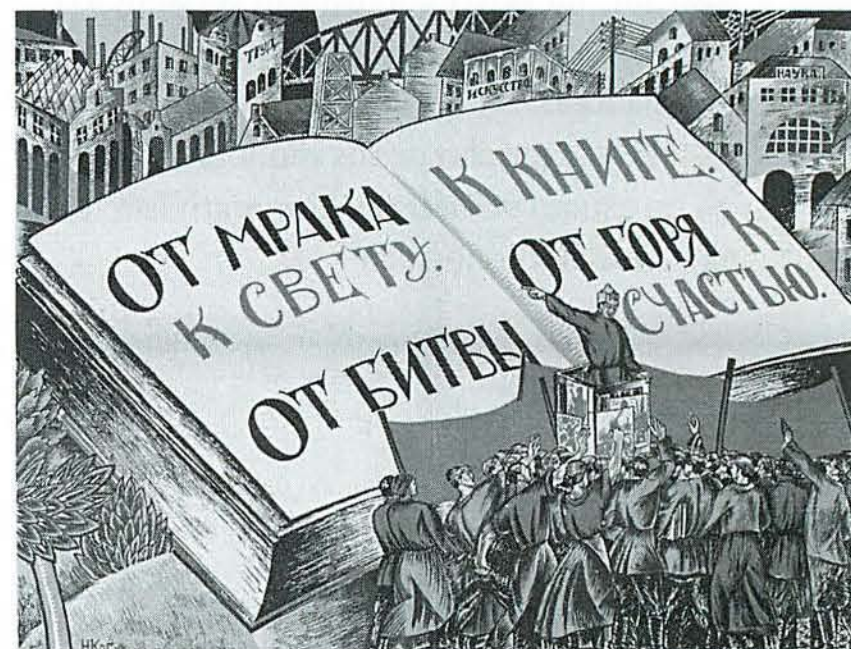 ТРУД
ИСКУССТВО
НАУКА
ОТ МРАКА
К СВЕТУ.
ОТ БИТВЫ
К КНИГЕ.
ОТ ГОРЯ К
СЧАСТЬЮ.